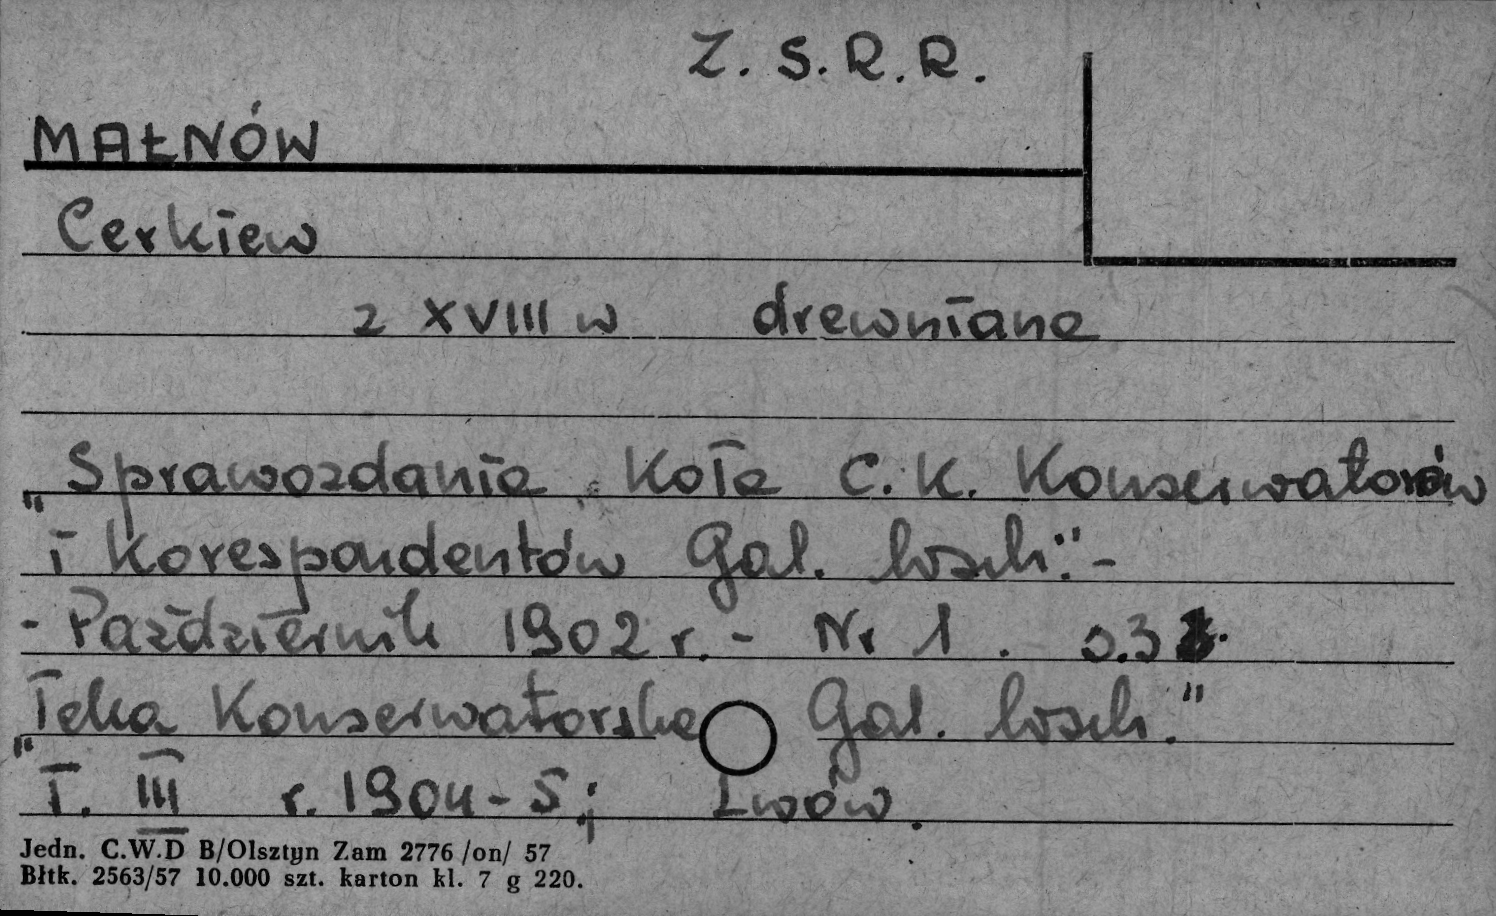 Z. S. R. R.
MAŁNÓW
Cerkiew
z XVIII w drewniana
"Sprawozdania Koła C. K. Konserwatorów
i Korespondentów Gal. wsch." -
- Październik 1902 r. - Nr 1. s. 3
"Teka Konserwatorska Gal. wsch."
T. III r. 1904-5; Lwów.
Jedn. C.W.D B/Olsztyn Zam 2776 /on/ 57
Błtk. 2563/57 10.000 szt. karton kl. 7 g 220.